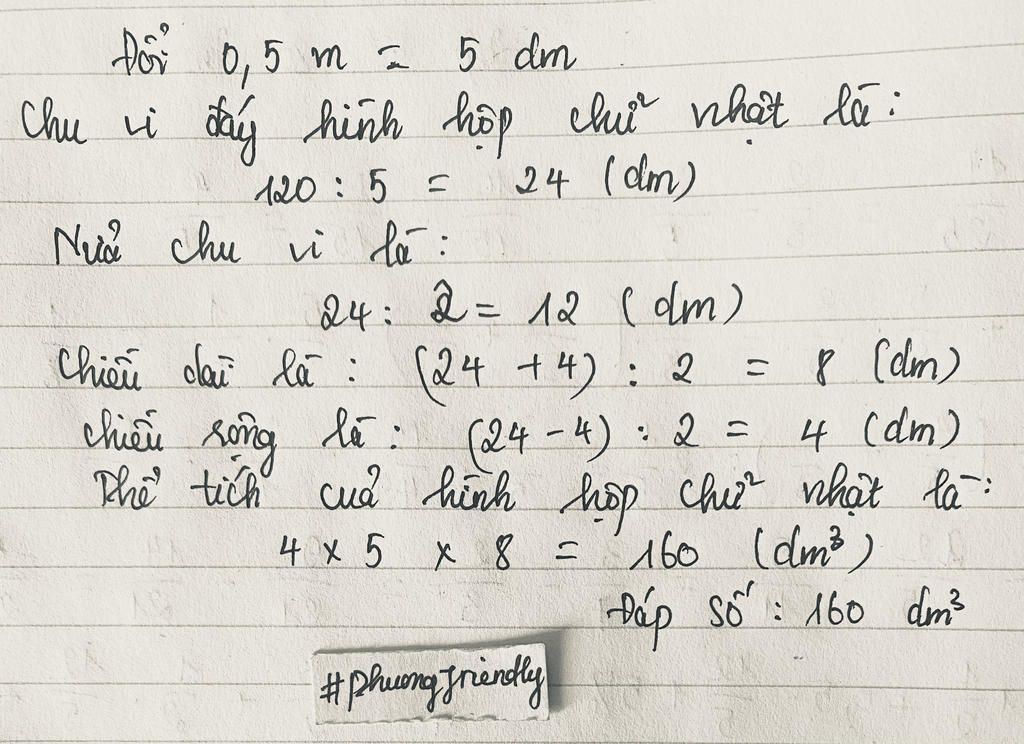 Đổi 0,5 m = 5 dm
Chu vi đáy hình hộp chữ nhật là:
120 : 5 = 24 (dm)
Nửa chu vi là:
24 : 2 = 12 (dm)
Chiều dài là : (24 + 4) : 2 = 8 (dm)
Chiều rộng là : (24 - 4) : 2 = 4 (dm)
Thể tích của hình hộp chữ nhật là:
4 x 5 x 8 = 160 (dm³)
Đáp số : 160 dm³
#phuongfriendly